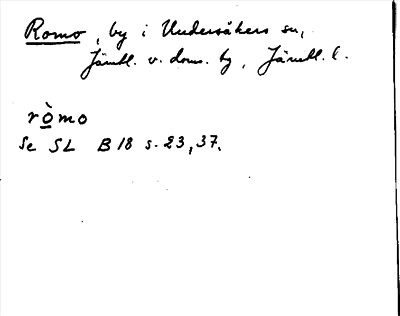 Romo, by i Undersåkers sn,
Jämtl. v. doms. by, Jämtl. l.
ròmo
Se SL B 18 s. 23, 37.